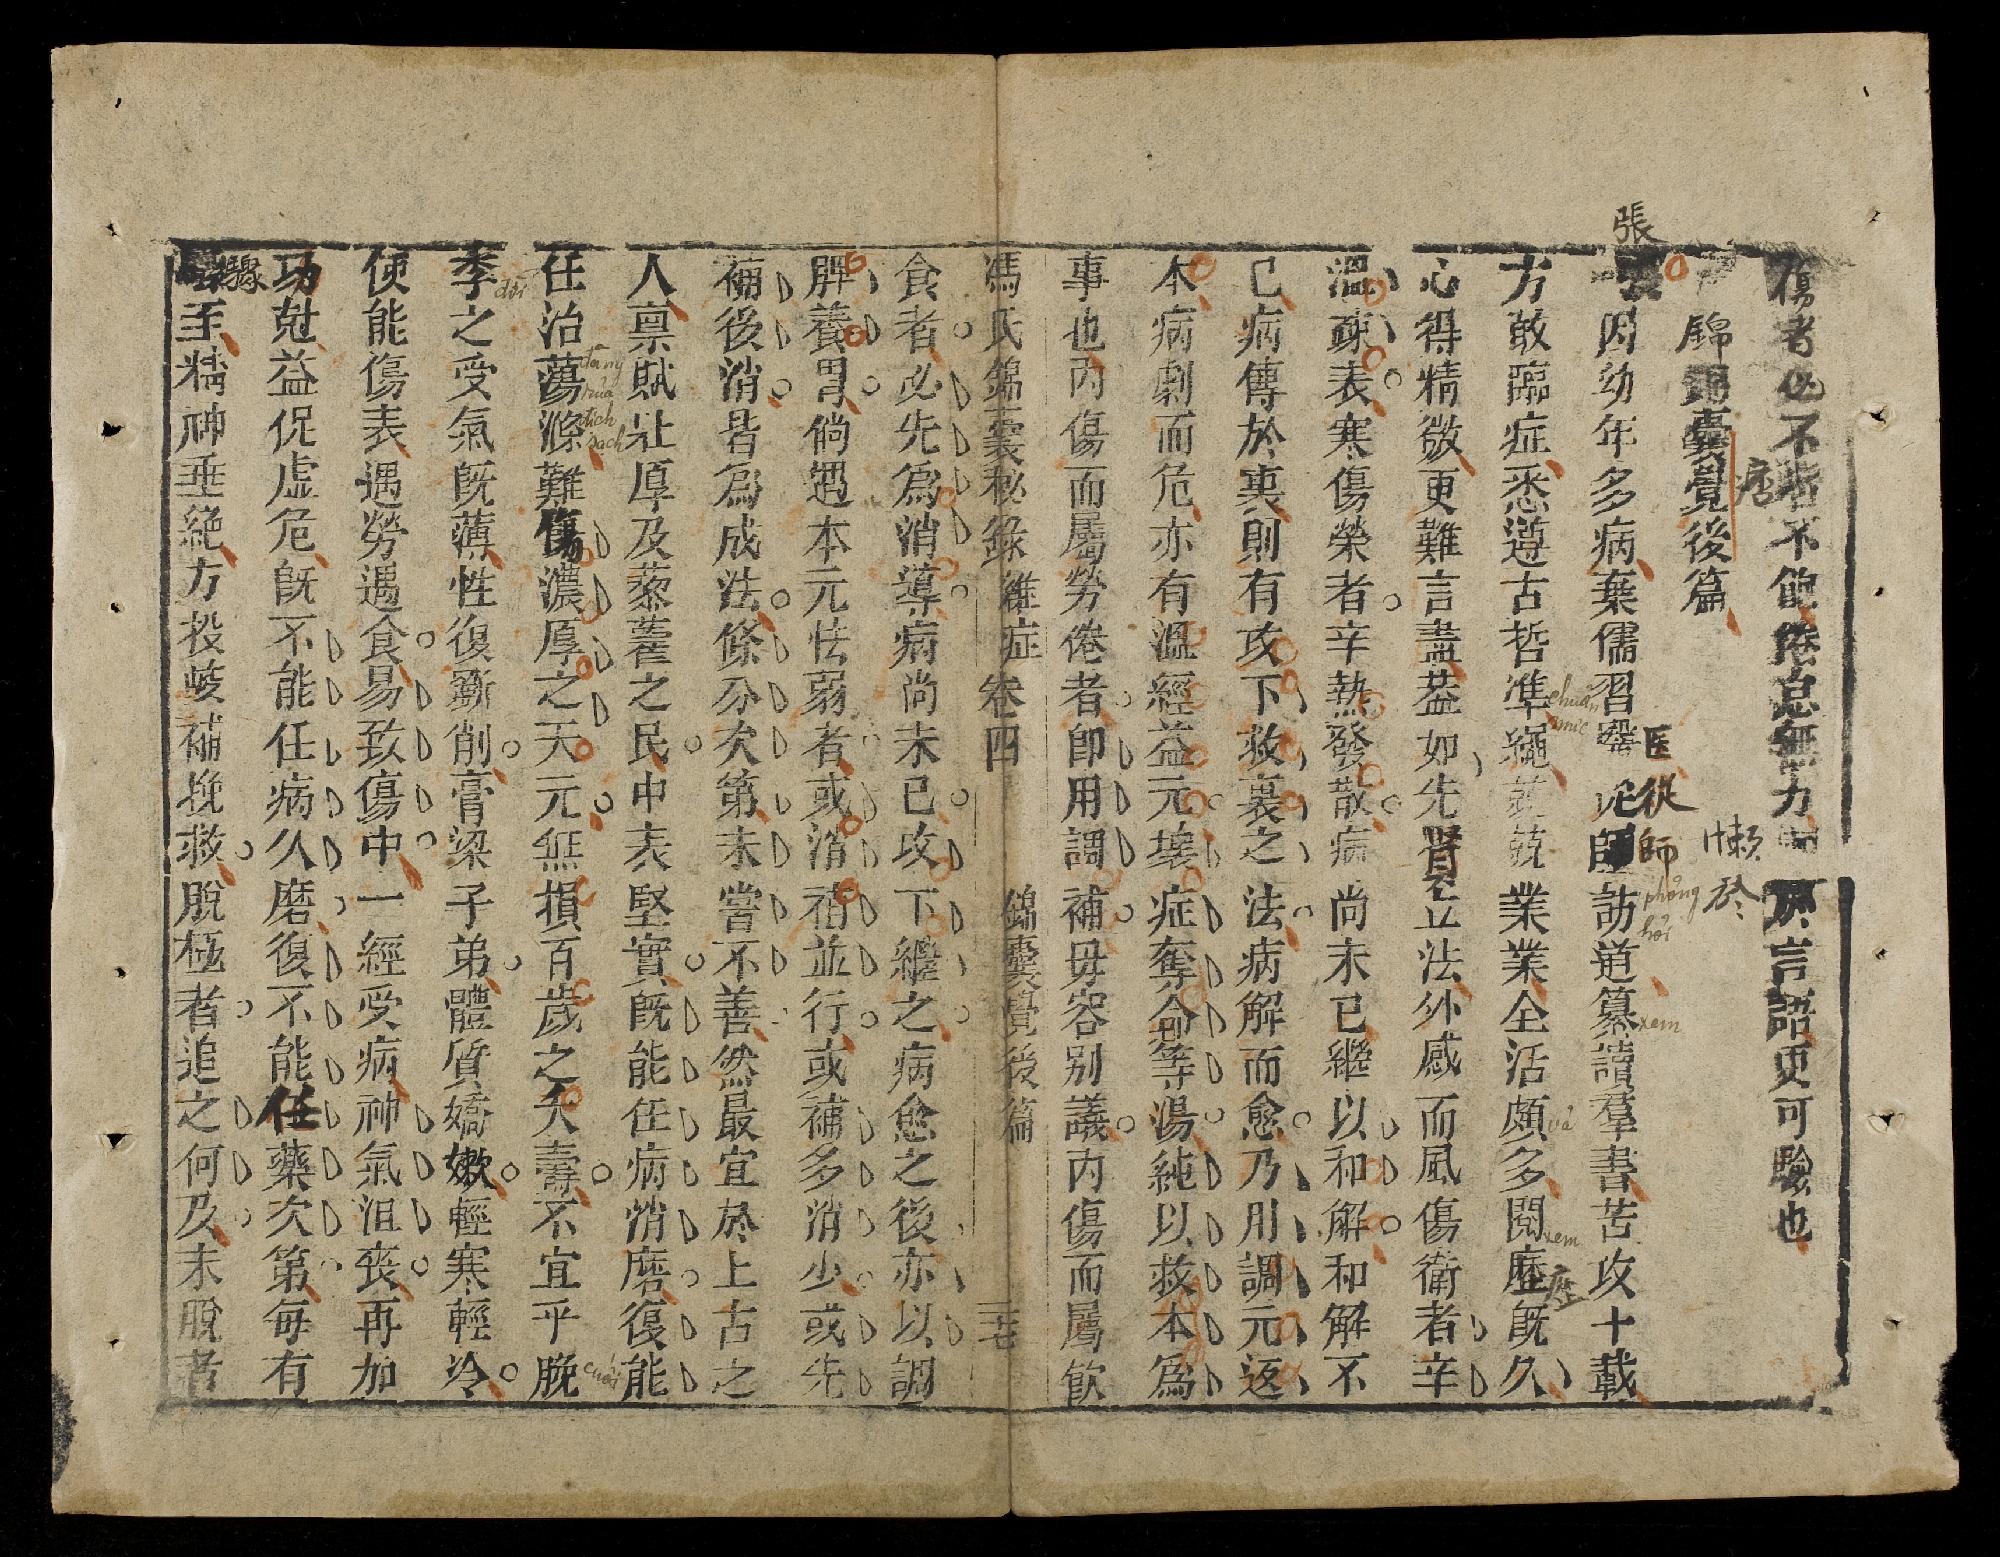 傷者必不能不飽倦怠無力懶於言語更可驗也
錦囊覺後篇
張因幼年多病棄儒習醫從師訪道纂讀羣書苦攻十載
方敢臨症悉遵古哲準繩兢兢業業全活頗多閱歷既久
心得精微更難言盡葢如先賢立法外感而風傷衛者辛
溫疎表寒傷榮者辛熱發散病尚未已繼以和解和解不
已病傳於裏則有攻下救裏之法病解而愈乃用調元返
本病劇而危亦有溫經益元壞症奪命等湯純以救本為
事也內傷而屬勞倦者即用調補毋容別議內傷而屬飲
馮氏錦囊秘錄 雜症 卷四 錦囊覺後篇 三七
食者必先為消導病尚未已攻下繼之病愈之後亦以調
脾養胃倘遇本元怯弱者或消補並行或補多消少或先
補後消皆為成法條分次第未嘗不善然最宜於上古之
人禀賦壯厚及藜藿之民中表堅實既能任病消磨復能
任治蕩滌難傷濃厚之天元無損百歲之天壽不宜乎晚
季之受氣既薄性復斵削膏粱子弟體質嬌嫩輕寒輕冷
使能傷表遇勞遇食易致傷中一經受病神氣沮喪再加
功尅益促虛危既不能任病久磨復不能任藥次第每有
驟至精神垂絕方投峻補挽救脫極者追之何及未脫者
張
唐
医從師
懶於
歷
驟
chuẩn mực
phỏng hỏi
xem
xem
đãng
rửa
địch
sạch
cuối